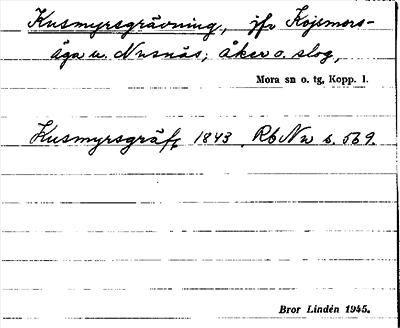 Kusmyrsgrävning, jfr Kojsmors-
äga u. Nusnäs; åker o. slog,
Mora sn o. tg, Kopp. l.
Kusmyrsgräft 1843 Rb Nu s. 569.
Bror Lindén 1945.